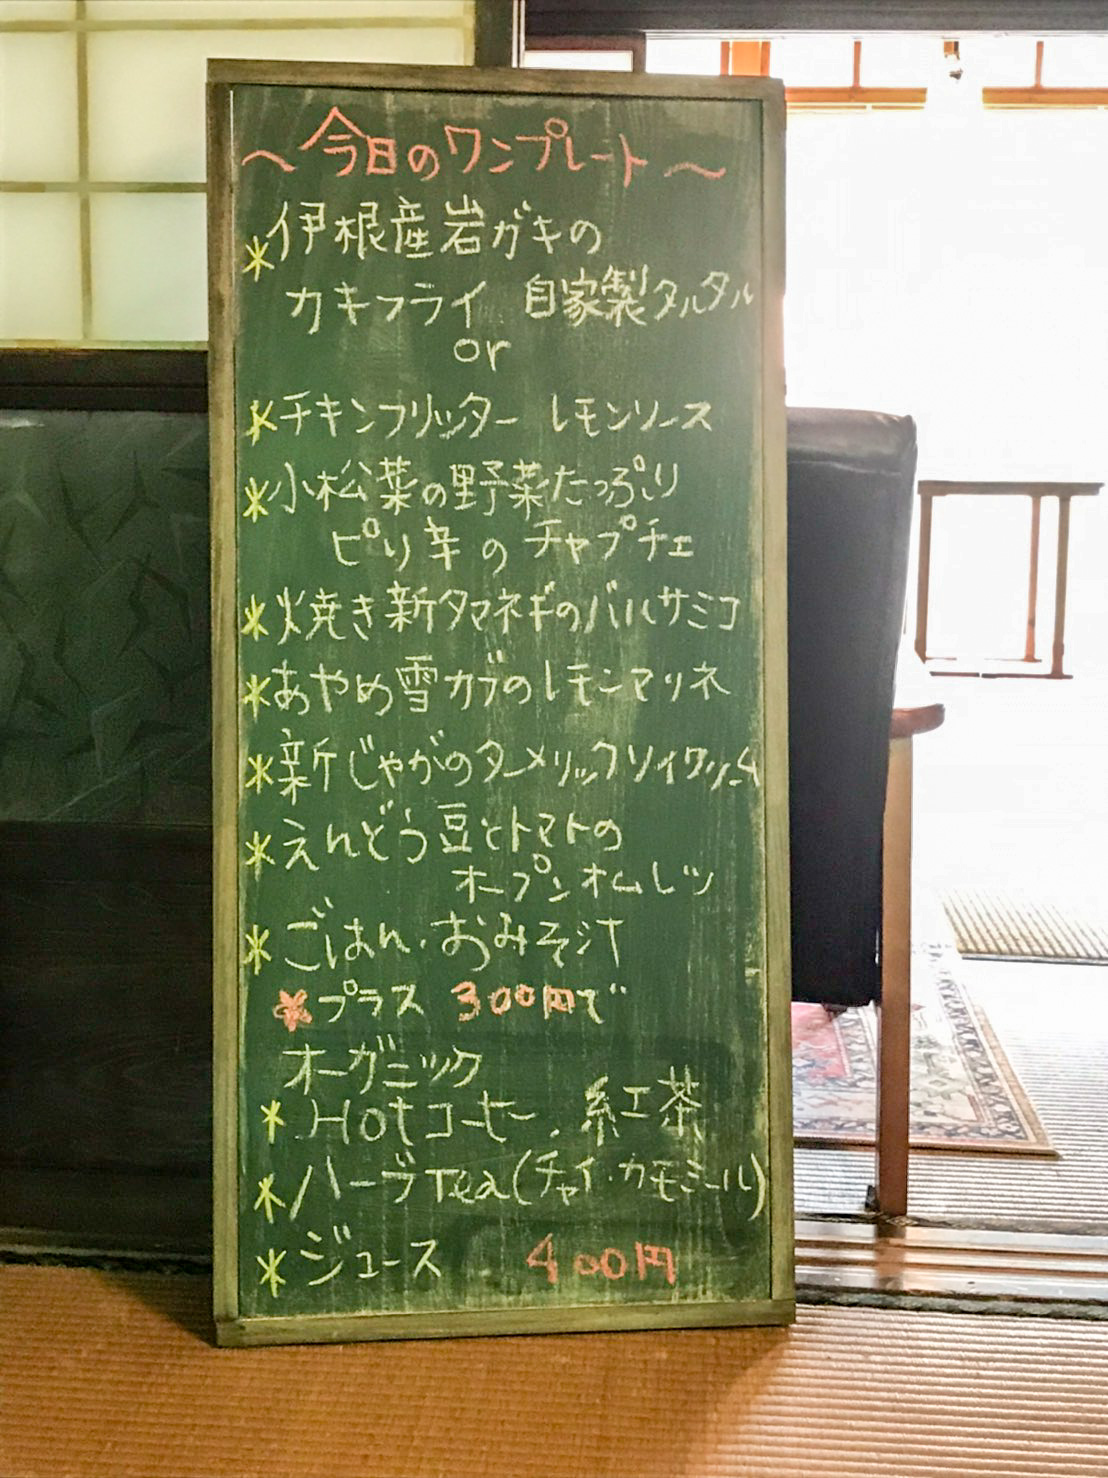 〜今日のワンプレート〜
*伊根産岩ガキの
カキフライ 自家製タルタル
or
*チキンフリッター レモンソース
*小松菜の野菜たっぷり
ピリ辛のチャプチェ
*焼き新タマネギのバルサミコ
*あやめ雪カブのレモンマリネ
*新じゃがのターメリックソイクリーム
*えんどう豆とトマトの
オープンオムレツ
*ごはん・おみそ汁
*プラス 300円で
オーガニック
*Hotコーヒー、紅茶
*ハーブTea(チャイ・カモミール)
*ジュース 400円